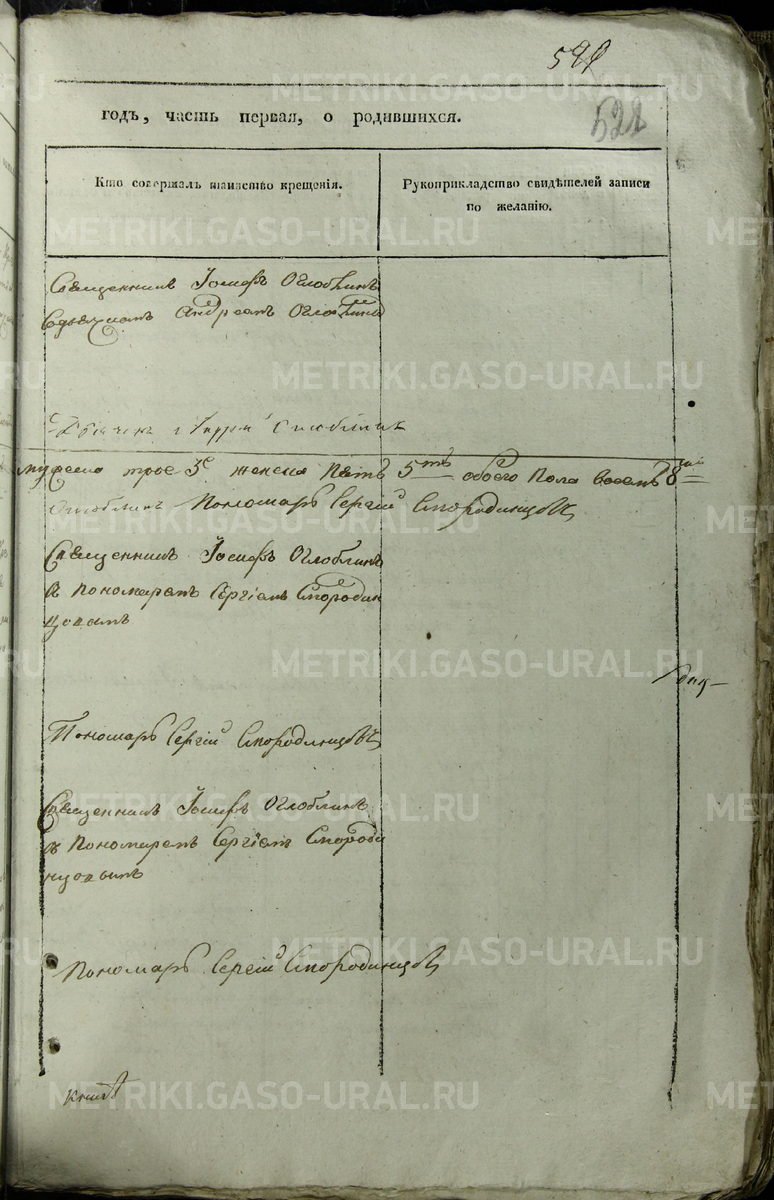 521
528
годъ, часть первая, о родившихся.
Кто совершалъ таинство крещенія.
Рукоприкладство свидѣтелей записи по желанію.
Священникъ Іосифъ Оглоблинъ
Андреемъ
мужеска трое 3е женска пять 5ть обоего пола восемь 8
Пономарь Сергій Смородинцовъ
Священникъ Іосифъ Оглоблинъ
съ пономаремъ Сергіемъ Смородин
цовымъ
Пономарь Сергій Смородинцовъ
Священникъ Іосифъ Оглоблинъ
съ пономаремъ Сергіемъ Смороди
нцовымъ
Пономарь Сергій Смородинцовъ
METRIKI.GASO-URAL.RU